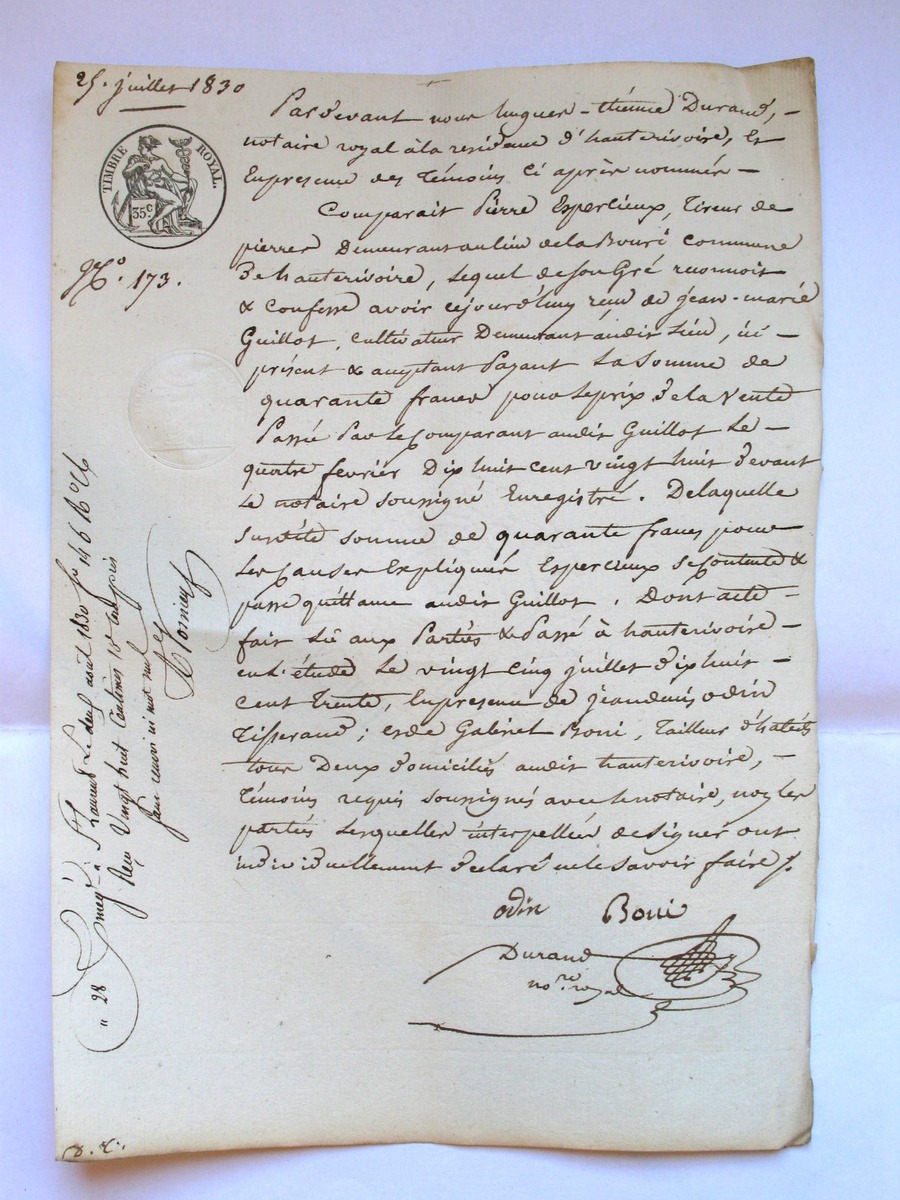 25. juillet 1830
TIMBRE ROYAL.
35c
No. 173.
Pardevant nous hugues-thienne Durand,
notaire royal à la residence d'hauterivoire, et
En presence des témoins Ci après nommés
Comparait Pierre Esperlieux, tireur de
pierres Demeurant au lieu de la Bouri commune
de hauterivoire, lequel de son Gré reconnoit
& confesse avoir cejourd'huy reçu de jean-marie
Guillot, cultivateur Demeurant audit lieu, ici
présent & acceptant Payant La somme de
quarante francs pour le prix de la Vente
Passée Par le Comparant audit Guillot Le
quatre fevrier Dix huit cent vingt huit devant
Le notaire soussigné Enregistré. De laquelle
susdite somme de quarante francs pour
Les Causes Expliquées Esperlieux se Contente &
passe quittance audit Guillot. Dont acte
fait Lu aux Parties & Passé à hauterivoire
en L'étude Le vingt cinq juillet dix huit
cent trente, En presence de jean denis odin
Tisserand; et de Gabriel Boni, Tailleur d'habits
tous Deux domiciliés audit hauterivoire,
témoins requis soussignés avec le notaire, non les
parties Lesquelles interpellées de signer ont
individuellement declaré ne le savoir faire ./.
odin Boni
Durand
nore. royal
Enregé. à St Laurent Le neuf août 1830 fo 146 Ro
Reçu Vingt huit Centimes 10e compris
sans renvoi ni mot nul
" 28